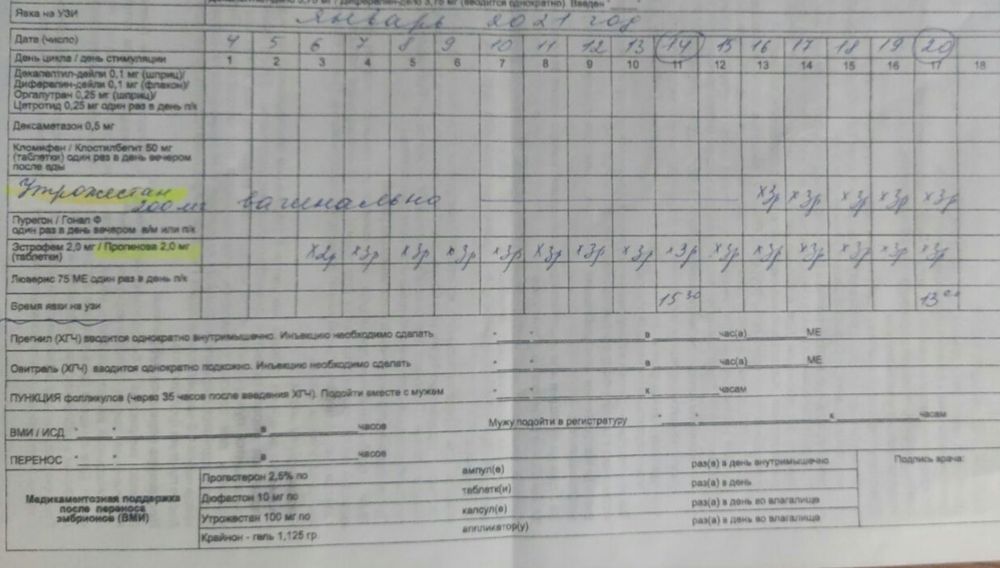 3,75 мг / Диферелин-дело 3,75 мг (вводится однократно). Введен
Явка на УЗИ Январь 2021 год
Дата (число) 4 5 6 7 8 9 10 11 12 13 14 15 16 17 18 19 20
День цикла / день стимуляции 1 2 3 4 5 6 7 8 9 10 11 12 13 14 15 16 17 18
Декапептил-дейли 0,1 мг (шприц)/
Диферелин-дейли 0,1 мг (флакон)/
Оргалутран 0,25 мг (шприц)/
Цетротид 0,25 мг один раз в день п/к
Дексаметазон 0,5 мг
Кломифен / Клостилбегит 50 мг
(таблетки) один раз в день вечером
после еды
Утрожестан
200 мг вагинально х3р х3р х3р х3р х3р
Пурегон / Гонал Ф
один раз в день вечером в/м или п/к
Эстрофем 2,0 мг / Прогинова 2,0 мг
(таблетки) х2р х3р х3р х3р х3р х3р х3р х3р х3р х3р х3р х3р х3р х3р х3р
Люверис 75 МЕ один раз в день п/к
Время явки на узи 15 30 13 00
Прегнил (ХГЧ) вводится однократно внутримышечно. Инъекцию необходимо сделать " " в час(а) МЕ
Овитрель (ХГЧ) вводится однократно подкожно. Инъекцию необходимо сделать " " в час(а) МЕ
ПУНКЦИЯ фолликулов (через 35 часов после введения ХГЧ). Подойти вместе с мужем " " к часам
ВМИ / ИСД " " в часов Мужу подойти в регистратуру " " к часам
ПЕРЕНОС " " в часов
Медикаментозная поддержка
после переноса
эмбрионов (ВМИ)
Прогестерон 2,5% по ампул(е) раз(а) в день внутримышечно Подпись врача:
Дюфастон 10 мг по таблетк(и) раз(а) в день
Утрожестан 100 мг по капсул(е) раз(а) в день во влагалище
Крайнон - гель 1,125 гр аппликатор(у) раз(а) в день во влагалище